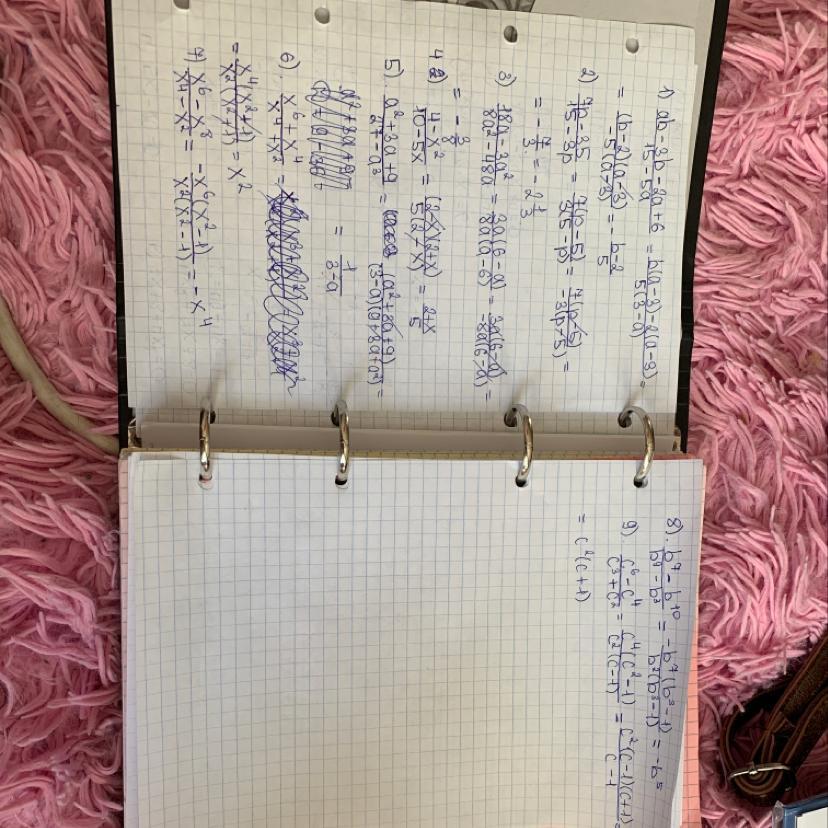 1) ab-3b-2a+6/15-5a = b(a-3)-2(a-3)/5(3-a) =
= (b-2)(a-3)/-5(a-3) = - b-2/5
2) 7p-35/15-3p = 7(p-5)/3(5-p) = 7(p-5)/-3(p-5) =
= - 7/3 = -2 1/3
3) 18a-3a²/8a²-48a = 3a(6-a)/8a(a-6) = 3a(6-a)/-8a(6-a) =
= - 3/8
4) 4-x²/10-5x = (2-x)(2+x)/5(2-x) = 2+x/5
5). a²+3a+9/27-a³ = (a²+3a+9)/(3-a)(9+3a+a²) =
= 1/3-a
6). x⁶+x⁴/x⁴+x² =
= x⁴(x²+1)/x²(x²+1) = x²
7) x⁶-x⁸/x⁴-x² = -x⁶(x²-1)/x²(x²-1) = -x⁴
8). b⁷-b¹⁰/b⁵-b² = -b⁷(b³-1)/b²(b³-1) = -b⁵
9) c⁶-c⁴/c³+c² = c⁴(c²-1)/c²(c-1) = c²(c-1)(c+1)/c-1 =
= c²(c+1)